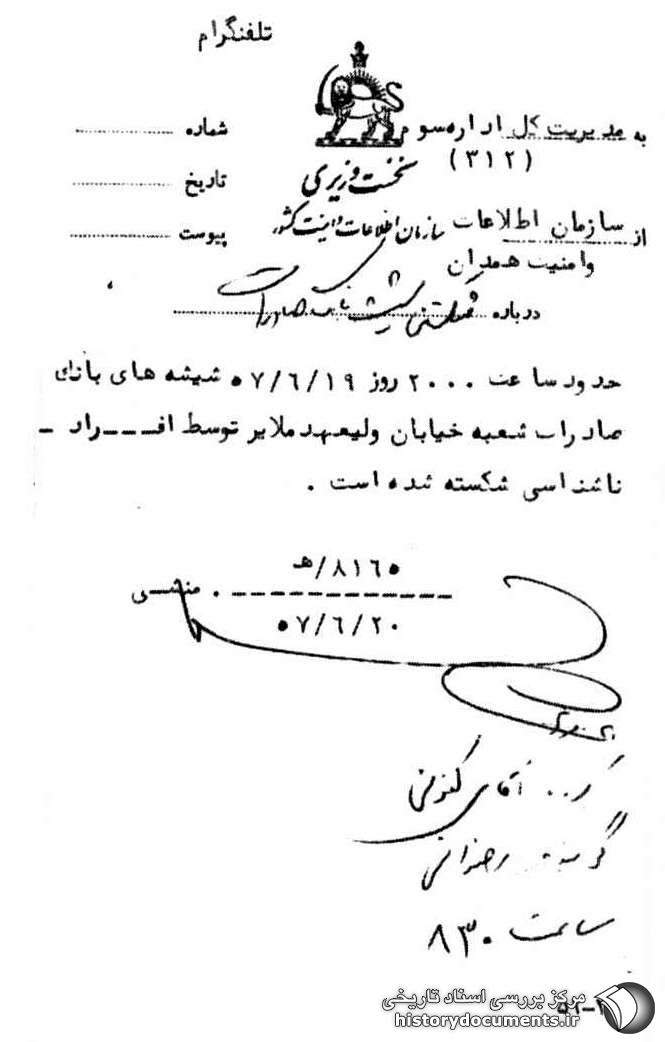 تلفنگرام
به مدیریت کل اداره سوم
(۳۱۲)
شماره
نخست وزیری
تاریخ
از سازمان اطلاعات
سازمان اطلاعات و امنیت کشور
پیوست
وامنیت همدان
درباره شکستن شیشه بانک صادرات
حدود ساعت ۲۰۰۰ روز ۵۷/۶/۱۹ شیشه های بانک
صادرات شعبه خیابان ولیعهد ملایر توسط افـــراد -
ناشناسی شکسته شده است .
۸۱۶۵/هـ
. منشی
۵۷/۶/۲۰
آقای
گوینده رضوانی
ساعت ۸۳۰
مرکز بررسی اسناد تاریخی
historydocuments.ir